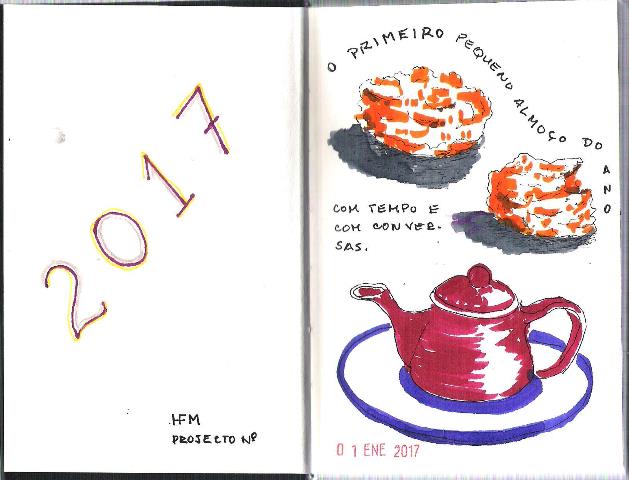 2017
HFM
PROJECTO Nº
O PRIMEIRO PEQUENO ALMOÇO DO ANO
COM TEMPO E
COM CONVER-
SAS.
01 ENE 2017